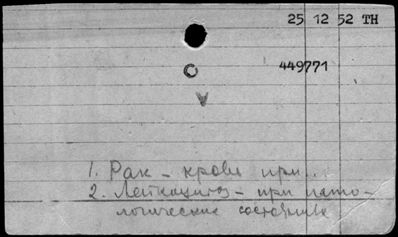 25 12 52 TH
449771
1. Рак - крови при..
2. Лейкоцитоз - при пато-
логические состояния